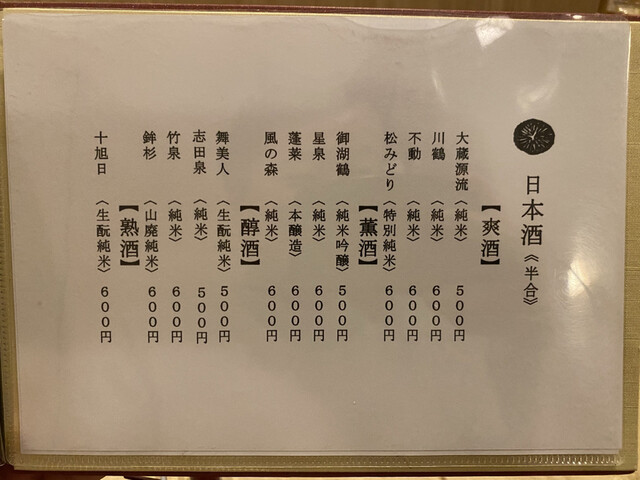 日本酒《半合》
【爽酒】
大蔵源流〈純米〉500円
川鶴〈純米〉600円
不動〈純米〉600円
松みどり〈特別純米〉600円
【薫酒】
御湖鶴〈純米吟醸〉500円
星泉〈純米〉600円
蓬莱〈本醸造〉600円
風の森〈純米〉600円
【醇酒】
舞美人〈生酛純米〉500円
志田泉〈純米〉500円
竹泉〈純米〉600円
鉾杉〈山廃純米〉600円
【熟酒】
十旭日〈生酛純米〉600円